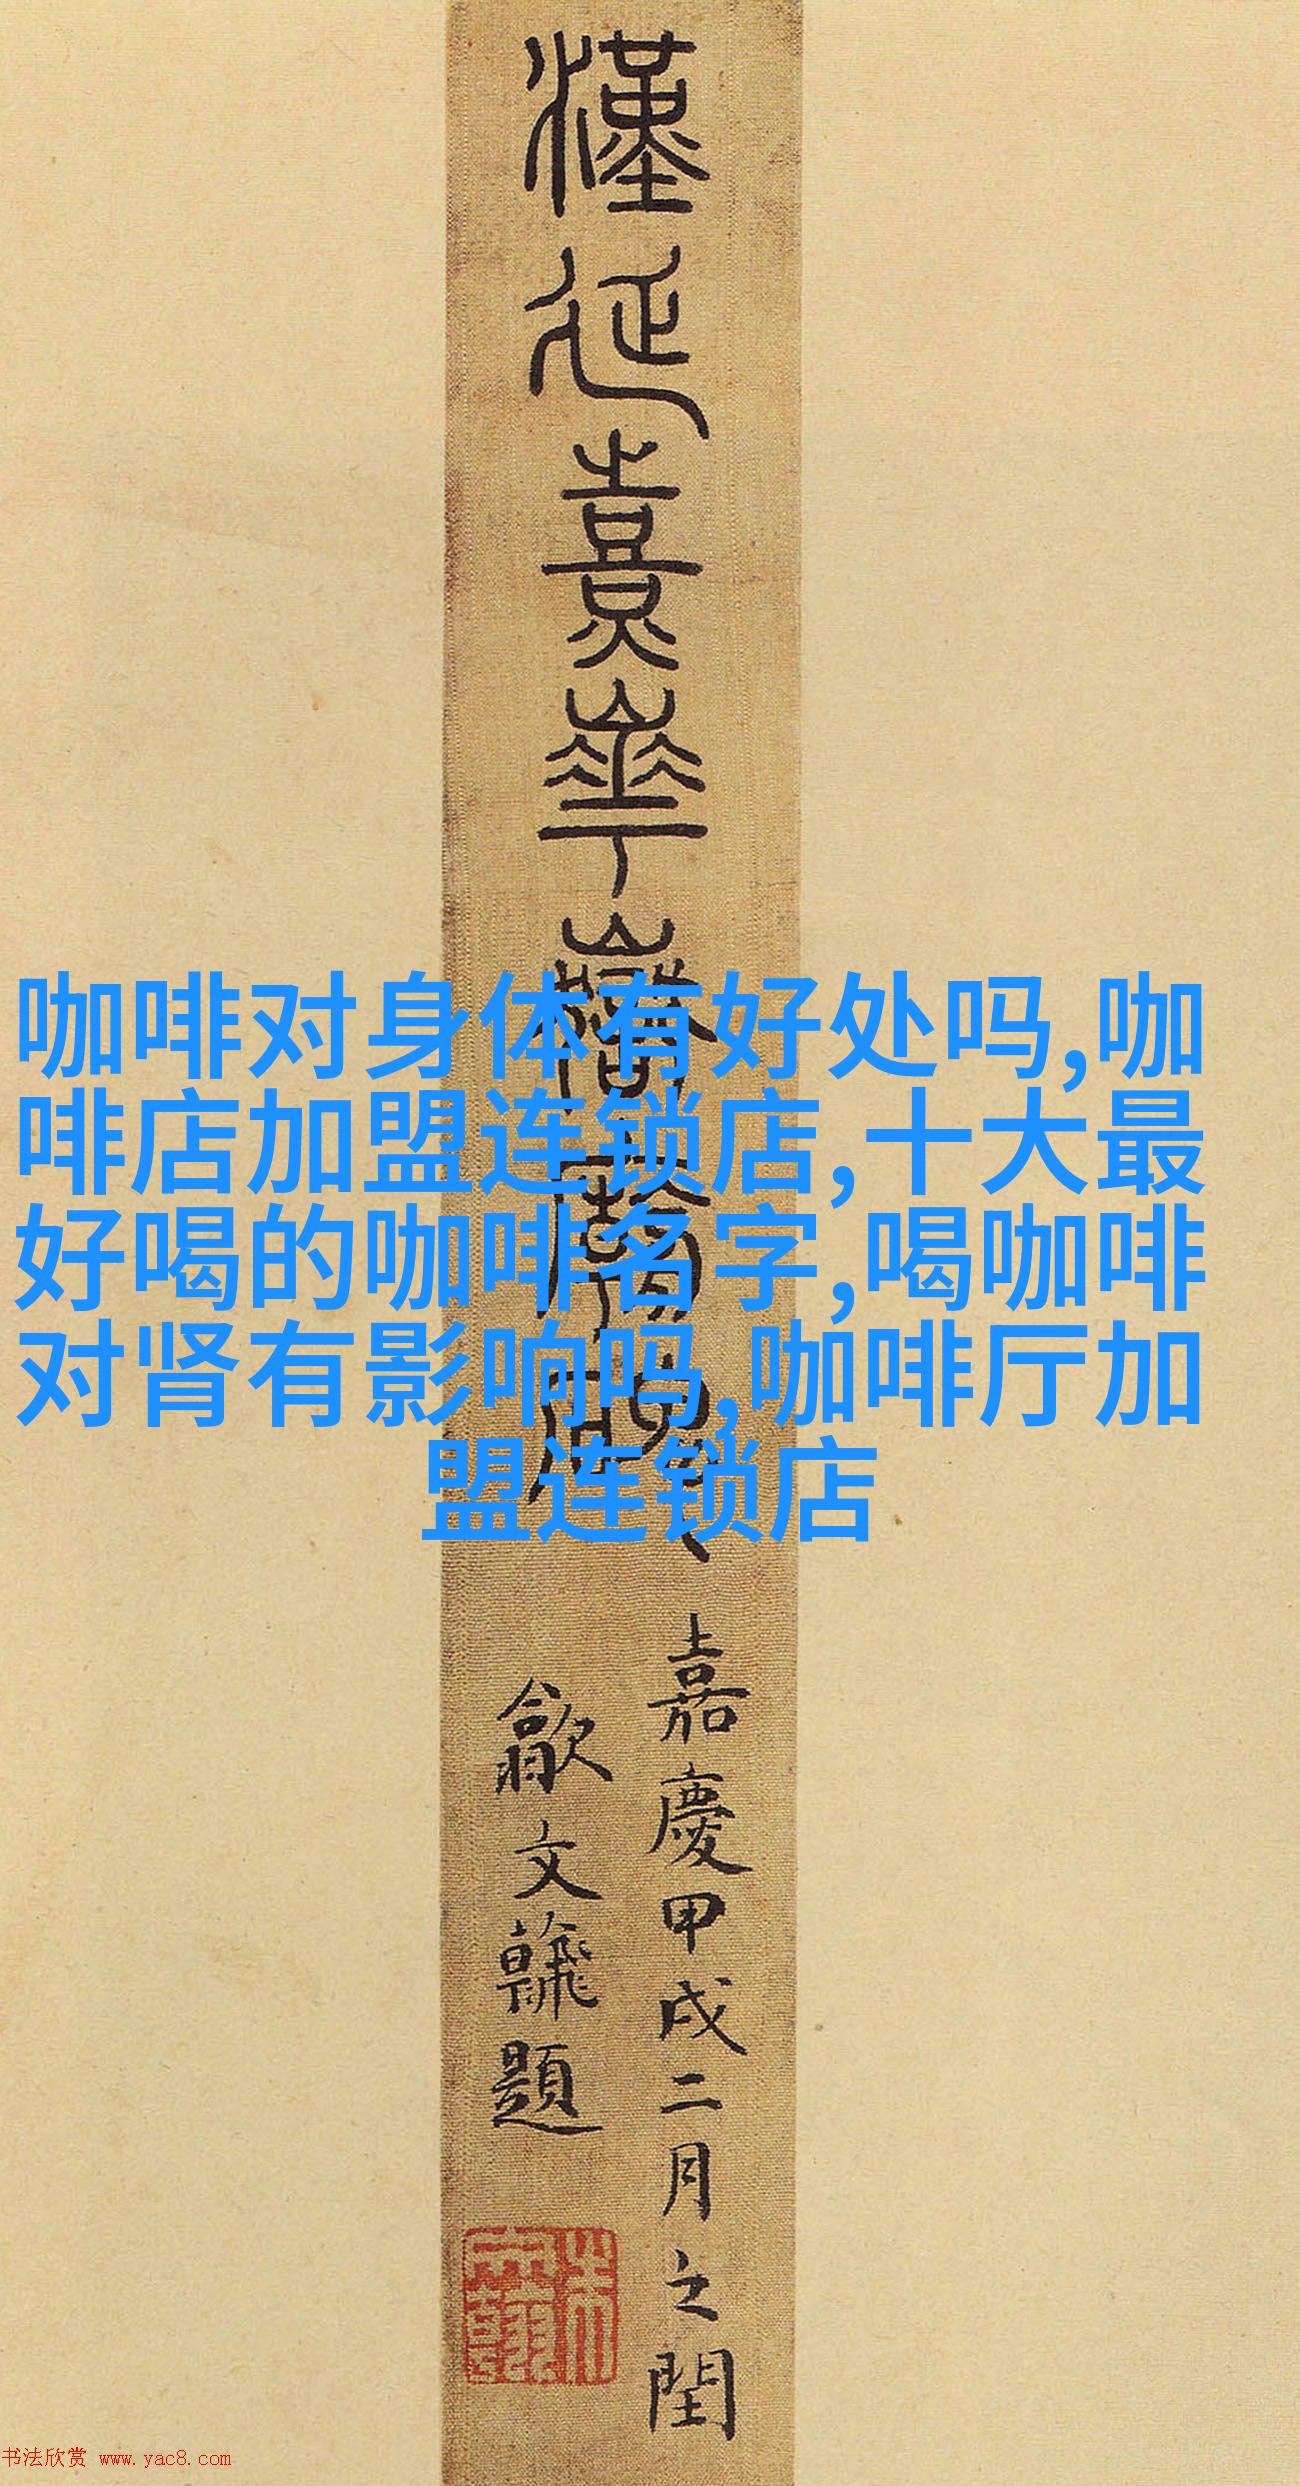 漢延熹華嶽廟碑
嘉慶甲戌二月之閏
歙文𩙺題
咖啡对身体有好处吗,咖
啡店加盟连锁店,十大最
好喝的咖啡名字,喝咖啡
对肾有影响吗,咖啡厅加
盟连锁店
书法欣赏 www.yac8.com